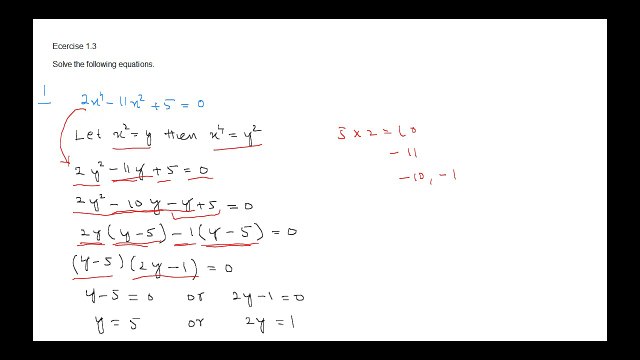 Ecercise 1.3
Solve the following equations.
1
2x⁴ - 11x² + 5 = 0
Let x² = y then x⁴ = y²
2y² - 11y + 5 = 0
2y² - 10y - y + 5 = 0
2y(y-5) - 1(y-5) = 0
(y-5)(2y-1) = 0
y-5 = 0 or 2y-1 = 0
y = 5 or 2y = 1
5 × 2 = 10
-11
-10, -1